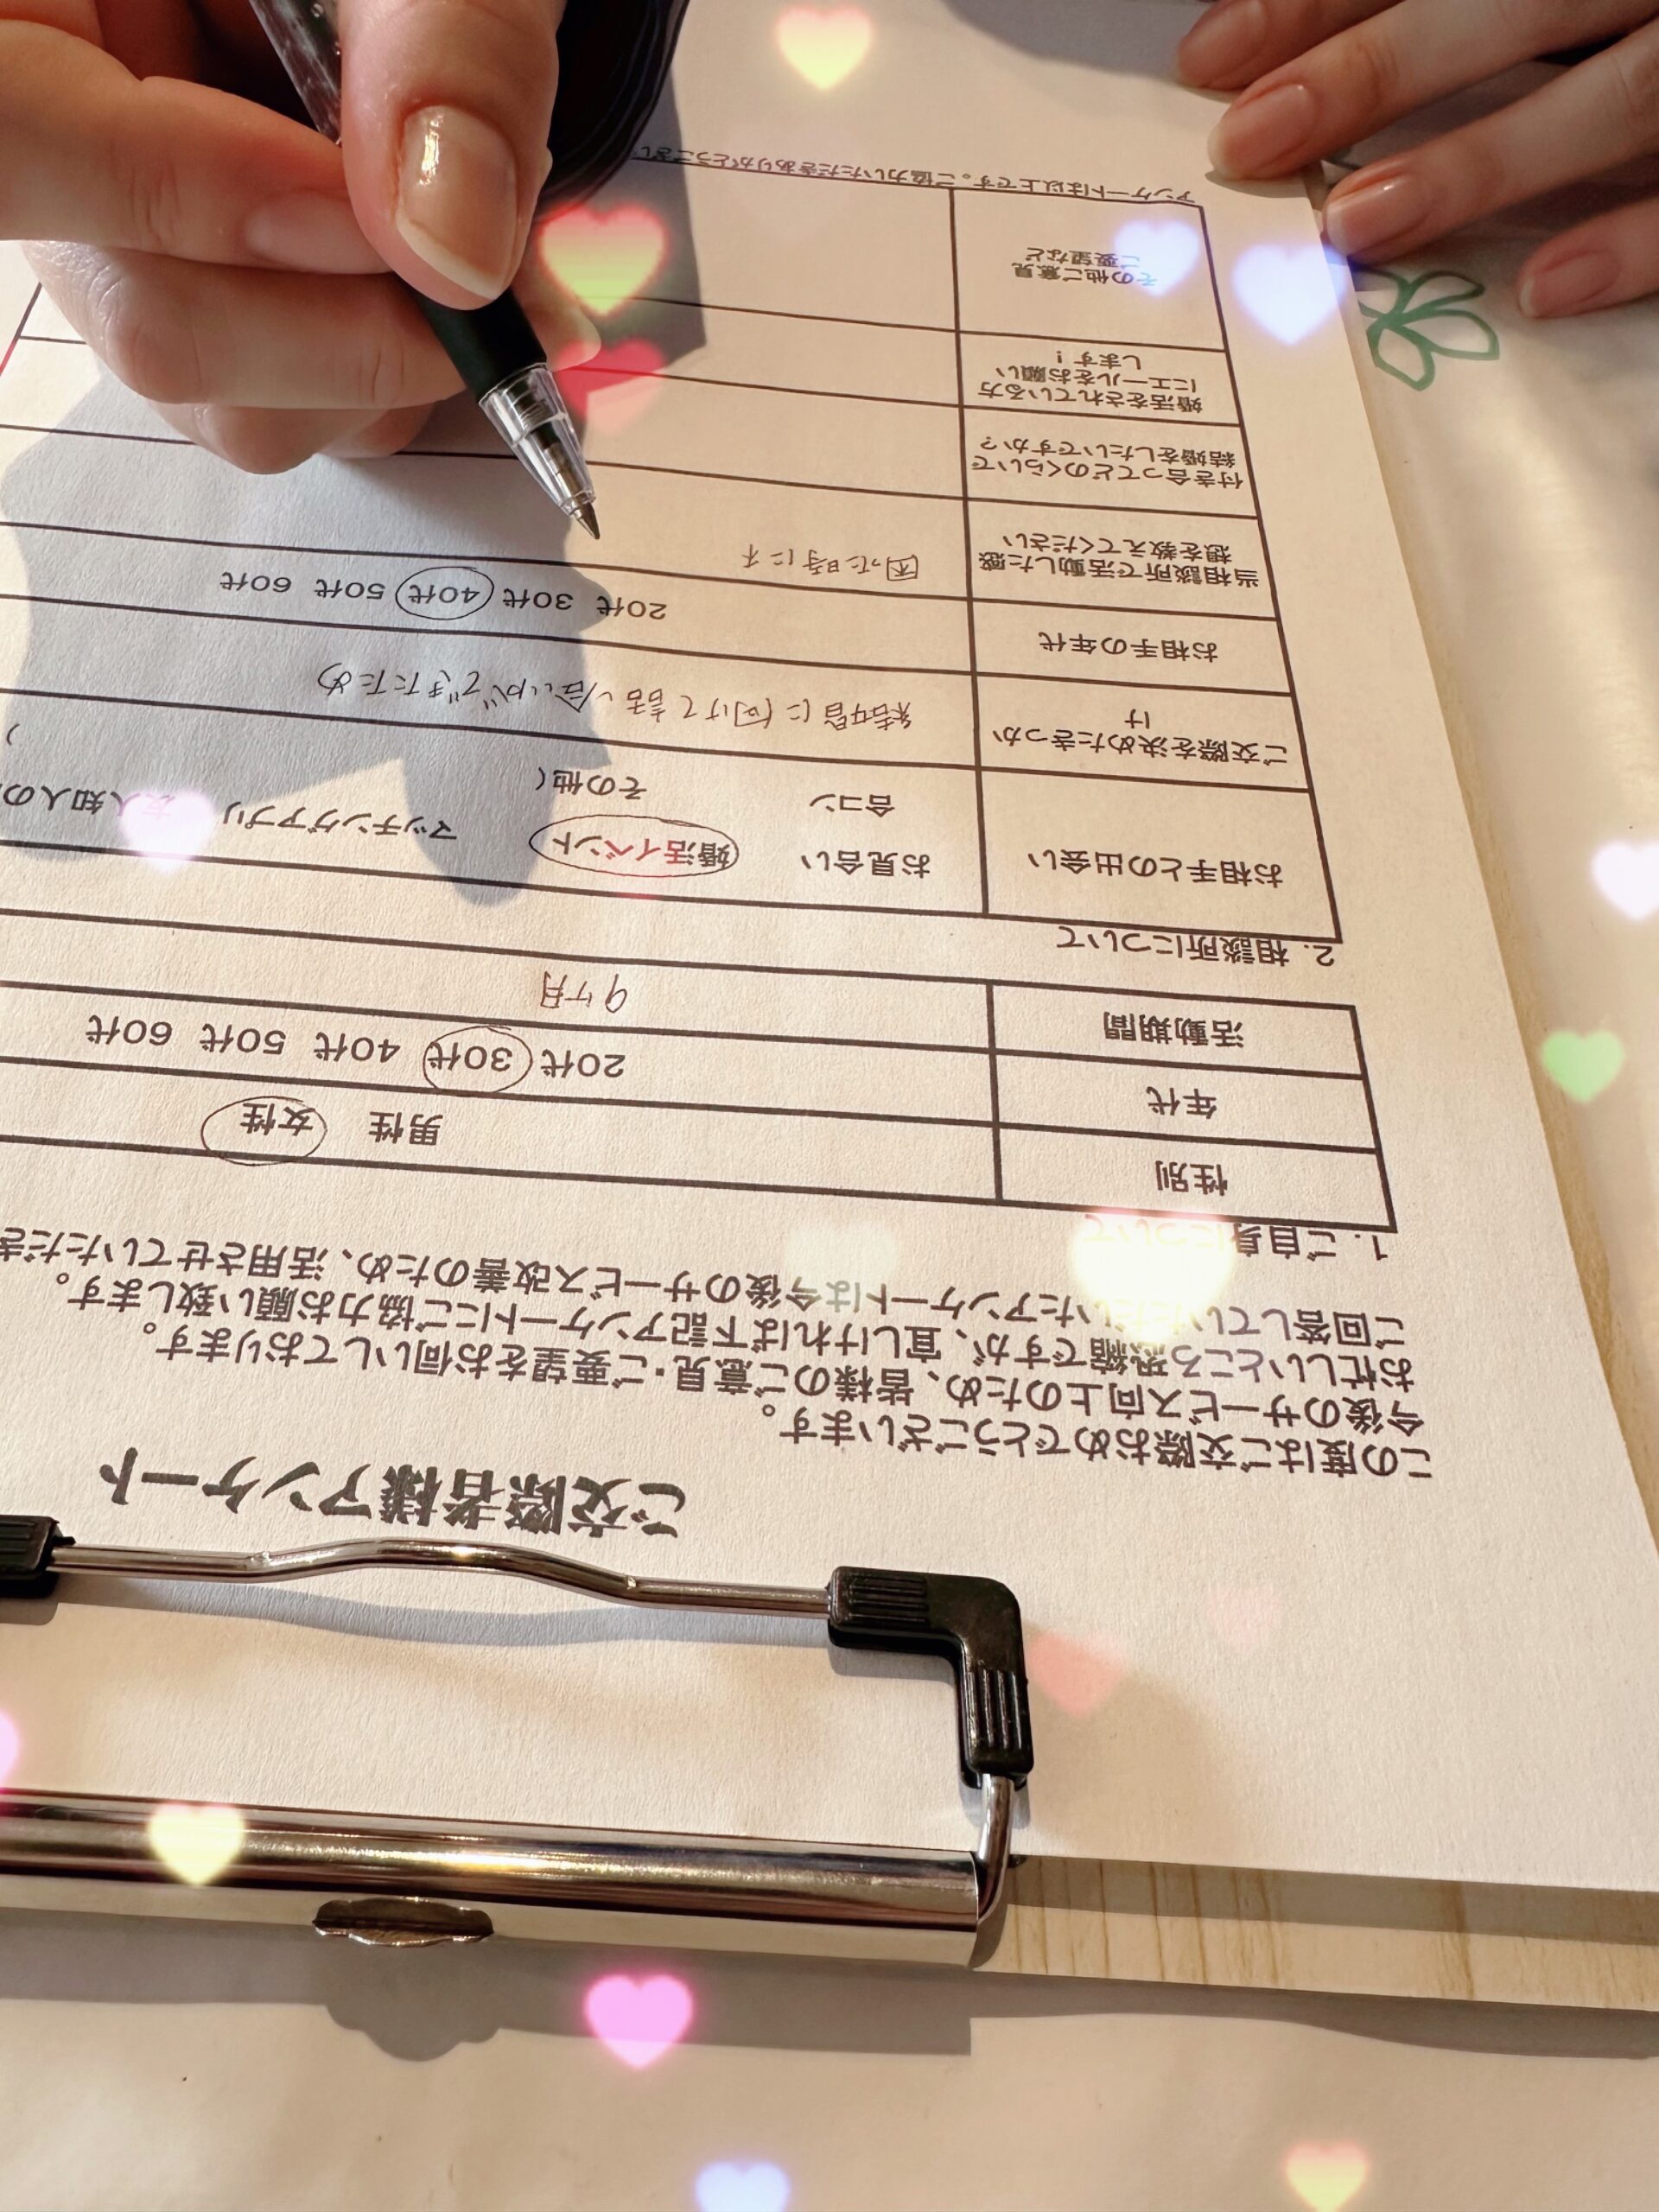 ご交際者様アンケート
この度はご交際おめでとうございます。
今後のサービス向上のため、皆様のご意見・ご要望をお伺いしております。
お忙しいところ恐縮ですが、宜しければ下記アンケートにご協力お願い致します。
ご回答していただいたアンケートは今後のサービス改善のため、活用させていただき
1. ご自身について
性別 男性 女性
年代 20代 30代 40代 50代 60代
活動期間 9ヶ月
2. 相談所について
お相手との出会い お見合い 婚活イベント マッチングアプリ 友人知人の
合コン その他( )
ご交際を決めたきっか
け
結婚に向けて話し合いができたため
お相手の年代 20代 30代 40代 50代 60代
当相談所で活動した感
想を教えてください
困った時にネ
付き合ってどのくらいで
結婚をしたいですか?
婚活をされている方
にエールをお願い
します!
その他ご意見
ご要望など
アンケートは以上です。ご協力いただきありがとうござい